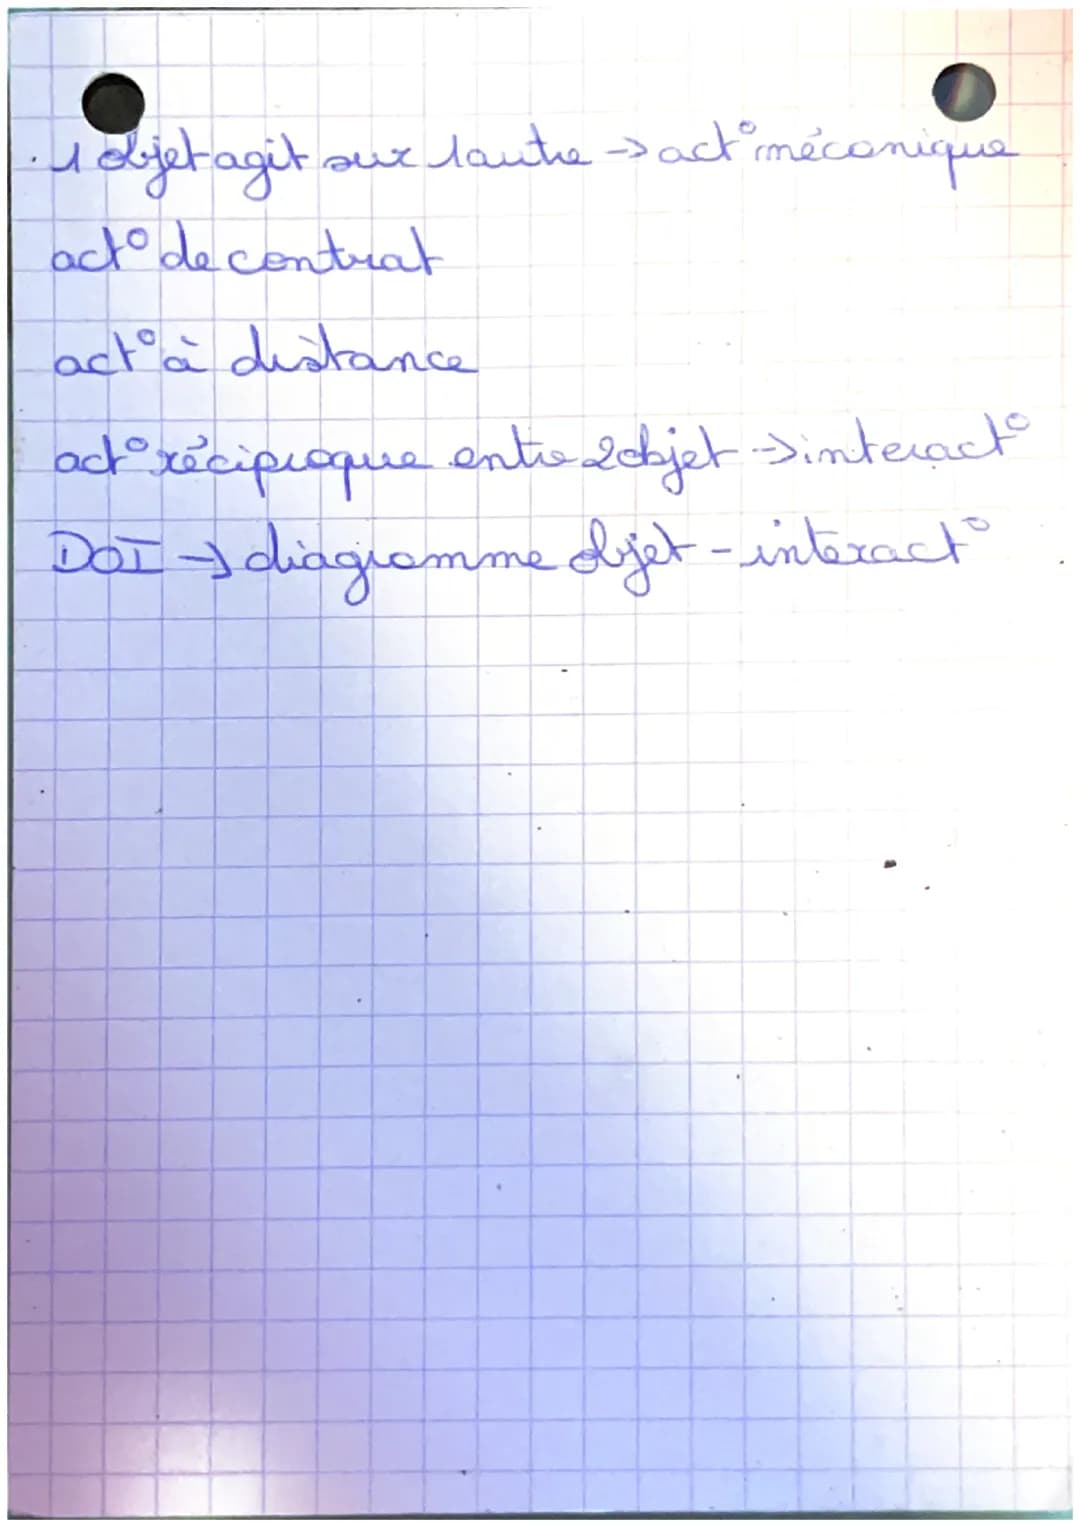 . 1 objet agit sur lautre → act° mécanique
act° de contrat
act° à distance
act° réciproque entre 2 objet → interact°
DOI → diagramme objet - interact°